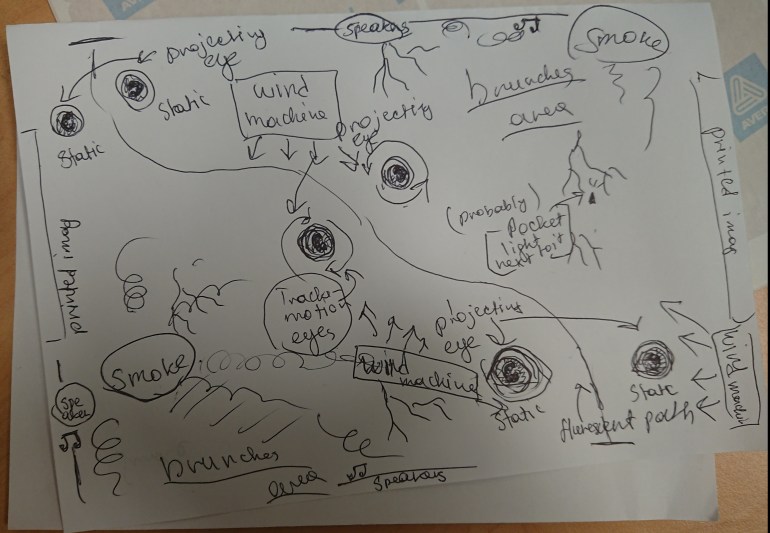 Speakers
Smoke
projecting
eye
Static
Static
wind
machine
projecting
eye
brunches
area
printed imag
(probably)
pocket
light
next to it
Track-
motion
eyes
projecting
eye
printed imag
Smoke
wind
machine
Static
Static
wind machin
fluresent path
Spe
akers
brunches
area
Speakers
AVERY